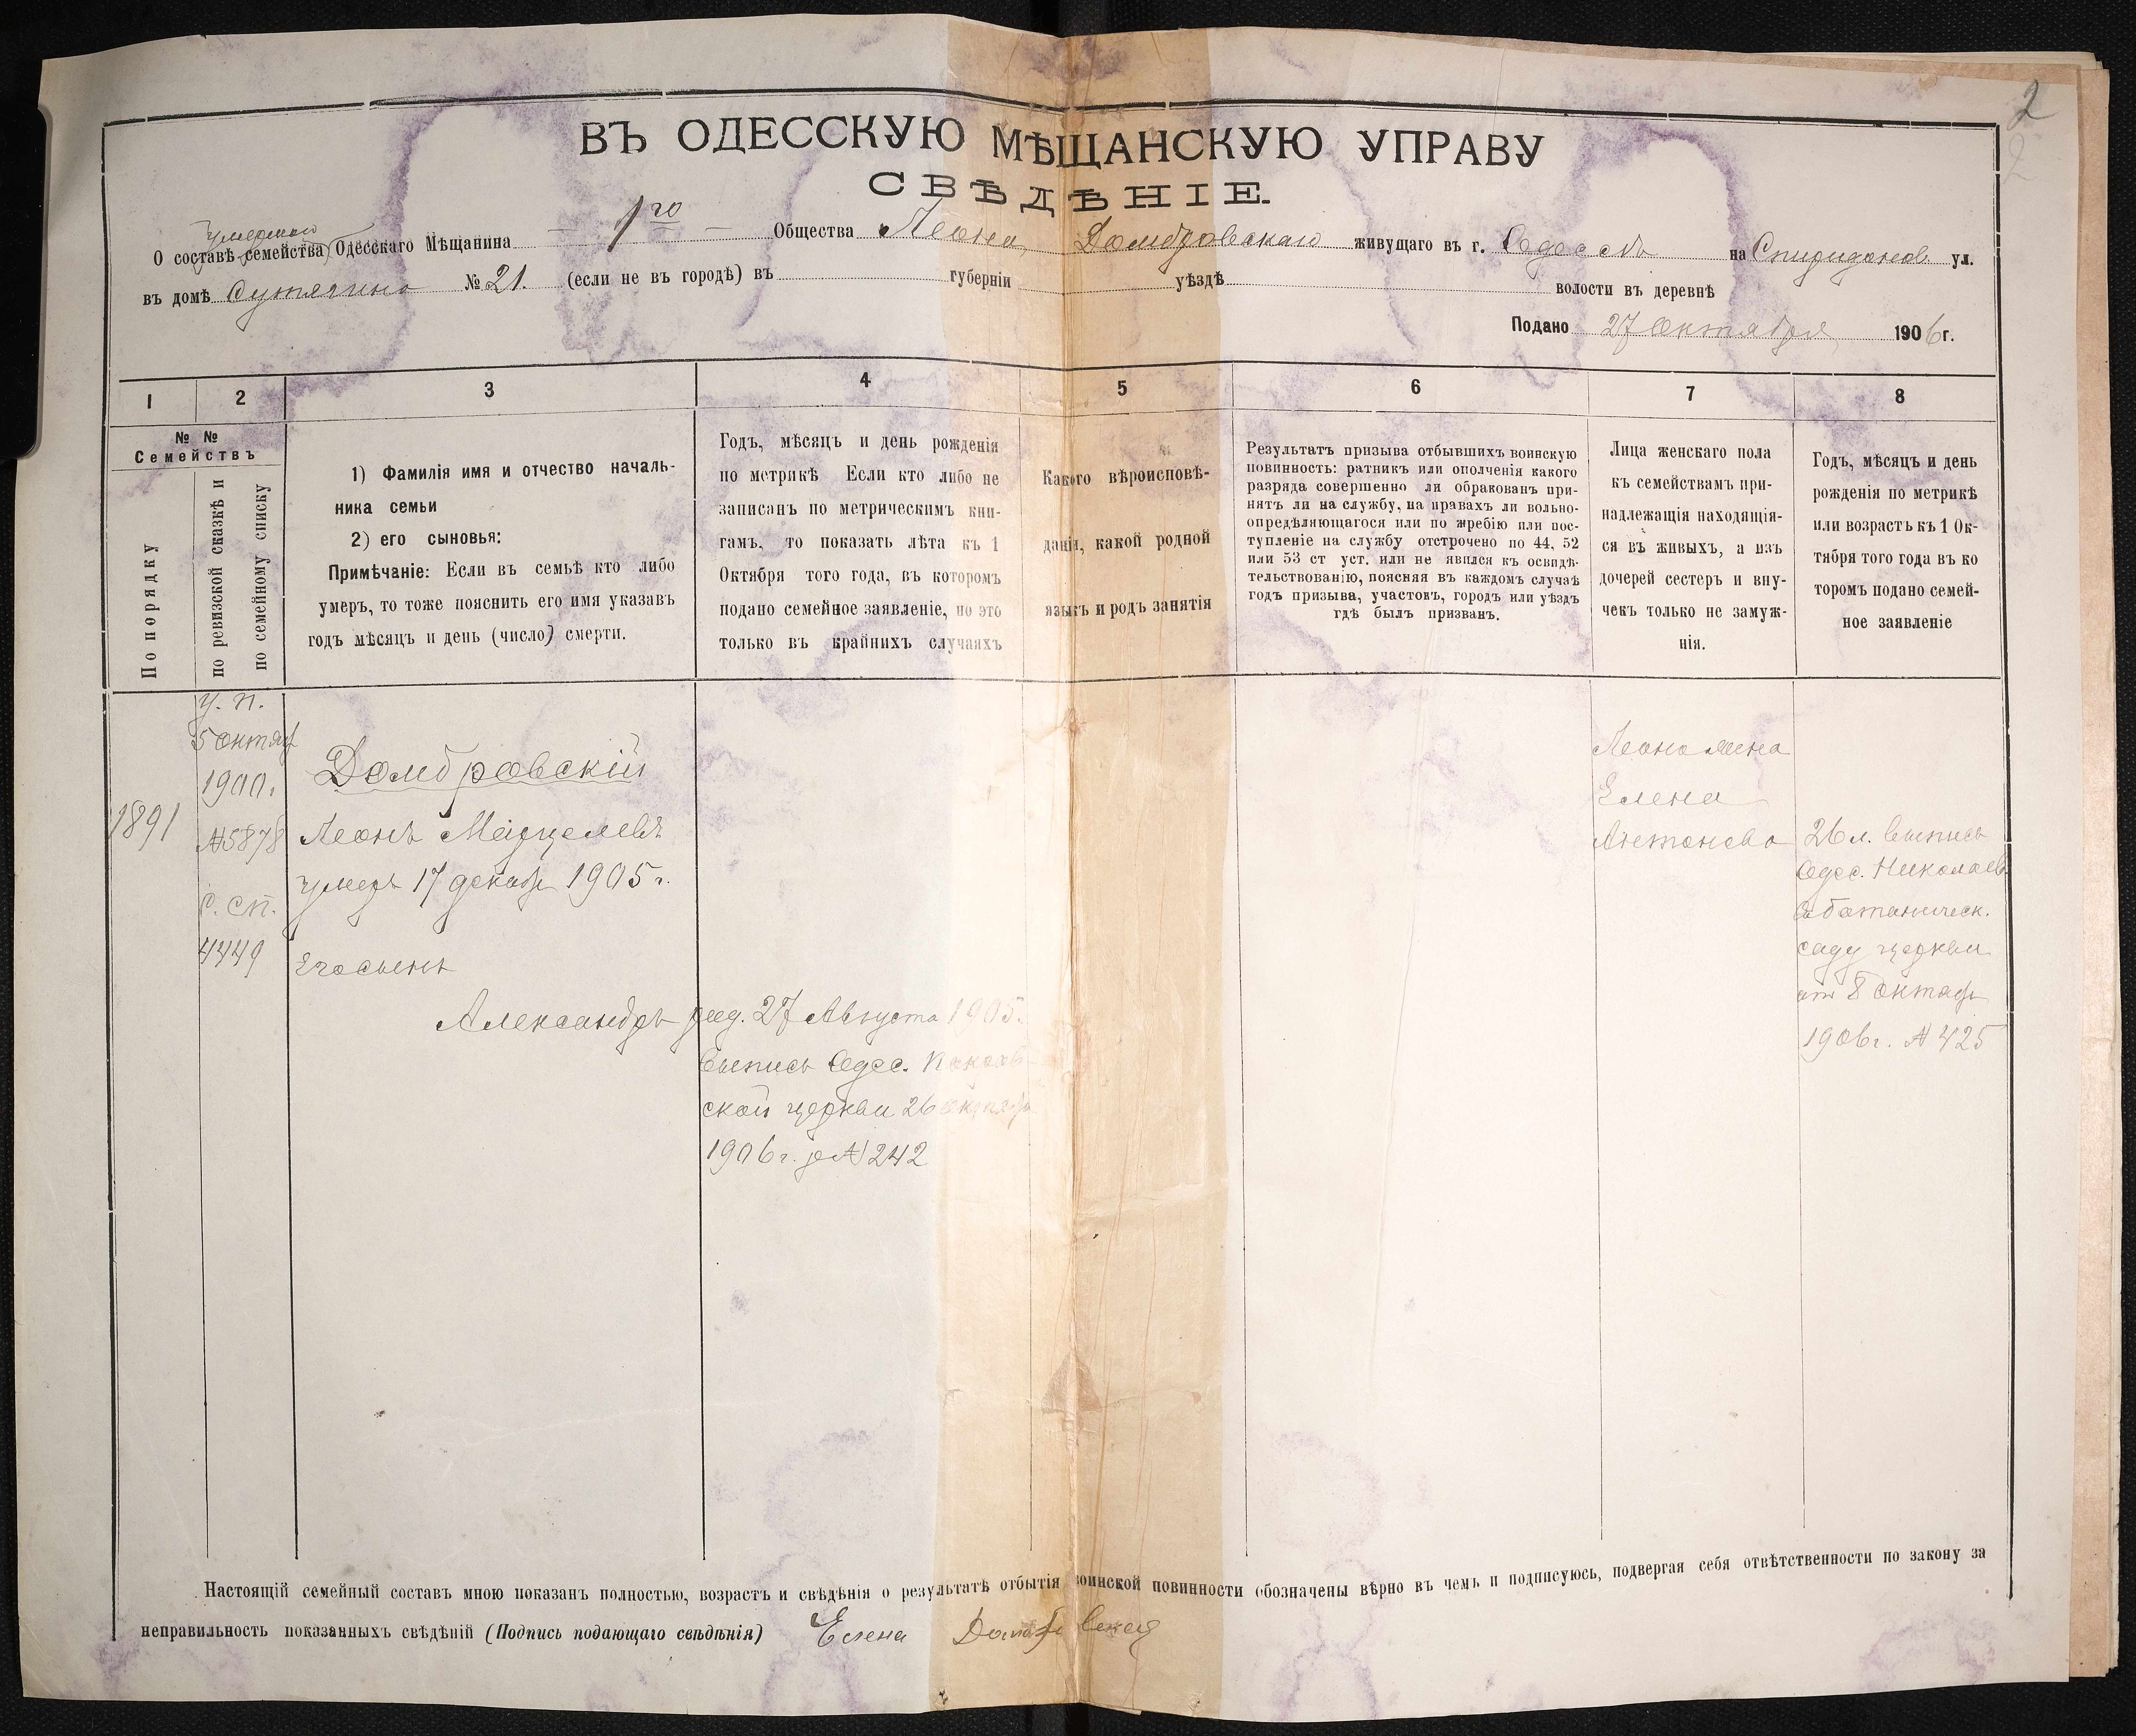 2
2
ВЪ ОДЕССКУЮ МѢЩАНСКУЮ УПРАВУ
СВѢДѢНІЕ.
умершаго
О составѣ семейства Одесскаго Мѣщанина 1го Общества Леона Домбровскаго живущаго въ г. Одессѣ на Спиридонов. ул.
въ домѣ Сутягина № 21. (если не въ городѣ) въ губерніи уѣздѣ волости въ деревнѣ
Подано 27 Октября 1906 г.
1 2 3 4 5 6 7 8
№ №
Семействъ
По порядку
по ревизской сказкѣ и
по семейному списку
1) Фамилія имя и отчество началь-
ника семьи
2) его сыновья:
Примѣчаніе: Если въ семьѣ кто либо
умеръ, то тоже пояснить его имя указавъ
годъ мѣсяцъ и день (число) смерти.
Годъ, мѣсяцъ и день рожденія
по метрикѣ Если кто либо не
записанъ по метрическимъ кни-
гамъ, то показать лѣта къ 1
Октября того года, въ которомъ
подано семейное заявленіе, но это
только въ крайнихъ случаяхъ
Какого вѣроисповѣ-
данія, какой родной
языкъ и родъ занятія
Результатъ призыва отбывшихъ воинскую
повинность: ратникъ или ополченія какого
разряда совершенно ли обракованъ при-
нятъ ли на службу, на правахъ ли вольно-
опредѣляющагося или по жребію или пос-
тупленіе на службу отстрочено по 44, 52
или 53 ст уст. или не явился къ освидѣ-
тельствованію, поясняя въ каждомъ случаѣ
годъ призыва, участокъ, городъ или уѣздъ
гдѣ былъ призван.
Лица женскаго пола
къ семействамъ при-
надлежащія находящія-
ся въ живыхъ, а изъ
дочерей сестеръ и вну-
чекъ только не замуж-
нія.
Годъ, мѣсяцъ и день
рожденія по метрикѣ
или возрастъ къ 1 Ок-
тября того года въ ко
торомъ подано семей-
ное заявленіе
1891
у. п.
5 октяб
1900.
№ 5878
с. сп.
4449
Домбровскій
Леонъ Марцелевъ
умеръ 17 декабр 1905 г.
Его сынъ
Александръ род. 27 Августа 1905.
выпись Одес. Покров-
ской церкви 26 октября
1906 г. за № 242
Леона жена
Елена
Антонова
26 л. выпись
Одес. Николаев.
ботаническ.
саду церкви
от 8 октябр
1906 г. № 425
Настоящій семейный составъ мною показанъ полностью, возрастъ и свѣдѣнія о результатѣ отбытія воинской повинности обозначены вѣрно въ чемъ и подписуюсь, подвергая себя отвѣтственности по закону за
неправильность показанныхъ свѣдѣній (Подпись подающаго свѣдѣнія) Елена Домбровская